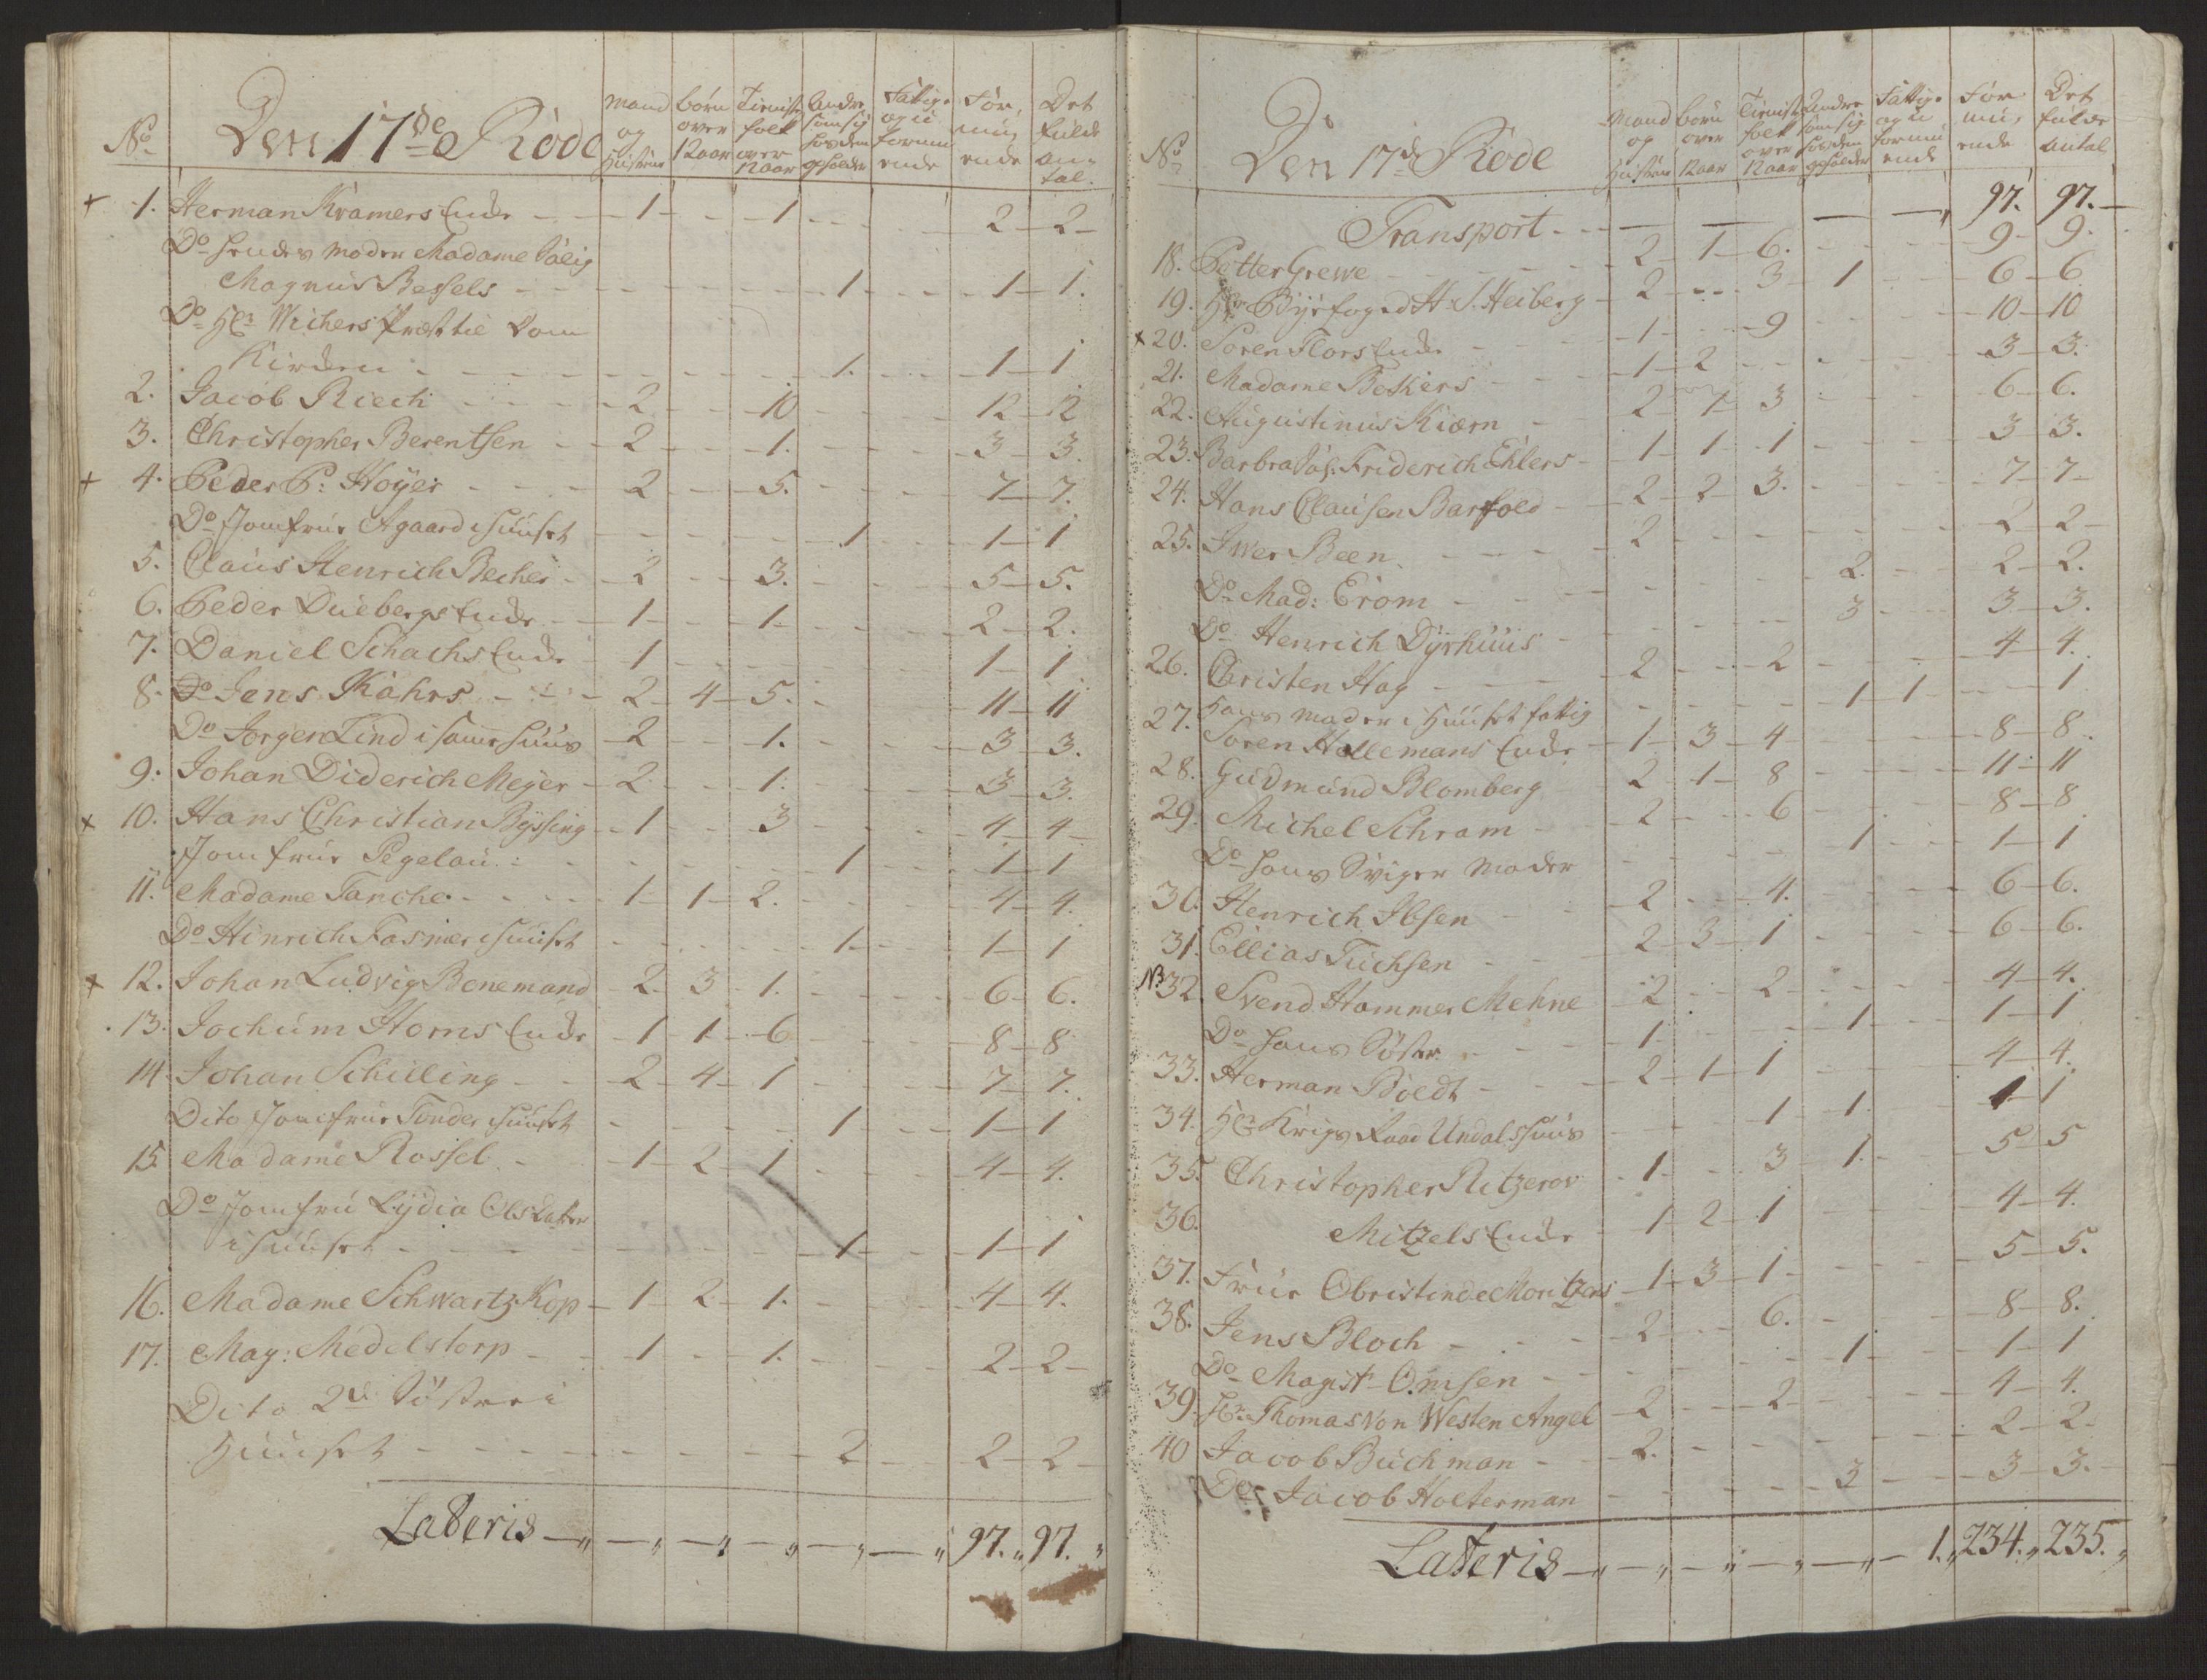 No Den 17de Rode Mand og Hustrue børn over 12 aar Tieniste folk over 12 aar Andre som sig hos dem opholder Fattige og u formu ende For mu ende Det fulde an tal.
+ 1. Herman Kramers Enke - 1 - 1 - 2 - 2
Do hendes moder Madame Salig
Magnus Bessels - 1 - 1 - 1.
Do Hr: Wichers Præst til Dom
Kirken - 1. - 1 - 1
2. Jacob Riech - 2 - 10 - 12 - 12
3. Christopher Berentsen - 2 - 1. - 3 - 3.
+ 4. Peder P: Høyer - 2 - 5. - 7 - 7.
Do Jomfrue Agaard i huuset - 1 - 1 - 1
5. Claus Henrich Becher - 2 - 3. - 5 - 5.
6. Peder Duebergs Enke - 1 - 1 - 2 - 2.
7. Daniel Schachs Enke - 1 - 1 - 1
8. Do Jens Kahrs - 2 - 4 - 5. - 11 - 11
Do Jørgen Lind i same huus - 2 - 1. - 3 - 3.
9. Johan Diderich Meyer - 2 - 1. - 3 - 3.
+ 10. Hans Christian Byssing - 1 - 3 - 4 - 4
Jomfrue Pegelau - 1 - 1 - 1
11. Madame Tanche - 1 - 1 - 2. - 4 - 4.
Do Hinrich Fasmer i huuset - 1 - 1 - 1
+ 12. Johan Ludvig Bonemand - 2 - 3 - 1. - 6 - 6.
13. Jochum Horns Enke - 1 - 1 - 6 - 8 - 8
14. Johan Schilling - 2 - 4 - 1 - 7 - 7.
Dito Jomfrue Tønder i huuset - 1 - 1 - 1
15. Madame Rossel - 1 - 2 - 1 - 4 - 4.
Do Jomfru Lydia Olsdatter
i huuset - 1 - 1 - 1
16. Madame Schwartzkop - 1 - 2 - 1. - 4 - 4.
17. Mag: Medelstorp - 1 - 1. - 2 - 2
Dito 2de Søstre i
Huuset - 2 - 2 - 2
Lateris 97. 97.
No Den 17de Rode Mand og Hustrue børn over 12 aar Tieniste folk over 12 aar Andre som sig hos dem opholder Fattige og u formu ende For mu ende Det fulde antal
Transport - 97. 97.
18. Petter Grewe - 2 - 1 - 6. - 9 - 9.
19. Hr Byefoged H. S. Heiberg - 2 - 3 - 1 - 6 - 6
+ 20. Søren Flors Enke - 1 - 9 - 10 - 10
21. Madame Beckers - 1 - 2 - 3 - 3.
22. Augustinus Kiærn - 2 - 1 - 3 - 6 - 6.
23. Barbra Sal. Friderich Ehlers - 1 - 1 - 1 - 3 - 3.
24. Hans Clausen Barfold - 2 - 2 - 3. - 7 - 7
25. Iver Been - 2 - 2 - 2
Do Mad: Erom - 2. - 2 - 2.
Do Henrich Dyrhuus - 3 - 3 - 3.
26. Christen Hag - 2 - 2 - 4 - 4.
Hans moder i Huuset fattig - 1 - 1 - 1
27. Søren Hallemans Enke - 1 - 3 - 4 - 8 - 8
28. Gudmund Blomberg - 2 - 1 - 8 - 11 - 11
29. Michel Schram - 2 - 6 - 8 - 8
Do hans Sviger moder - 1 - 1 - 1
30. Henrich Ibsen - 2 - 4. - 6 - 6.
31. Ellias Tuchsen - 2 - 3 - 1 - 6 - 6.
NB 32. Svend Hammer Mehne - 2 - 2 - 4 - 4.
Do hans Søster - 1 - 1 - 1 - 1
33. Herman Boedt - 2 - 1 - 1 - 4 - 4.
34. Hr: Krigs Raad Undals huus - 1 - 1. - 1 - 1
35. Christopher Ritzerov - 1 - 3 - 1. - 5 - 5
36. Mitzels Enke - 1 - 2 - 1 - 4 - 4.
37. Frue Obristinde Moritzens - 1 - 3 - 1 - 5 - 5.
38. Jens Bloch - 2 - 6. - 8 - 8.
Do Magist Omsen - 1 - 1 - 1
39. Hr: Thomas von Westen Angel - 2 - 2 - 4 - 4.
40 Jacob Buchman - 2. - 2 - 2
Do Jacob Holterman - 3 - 3 - 3.
Lateris 1. 234. 235.